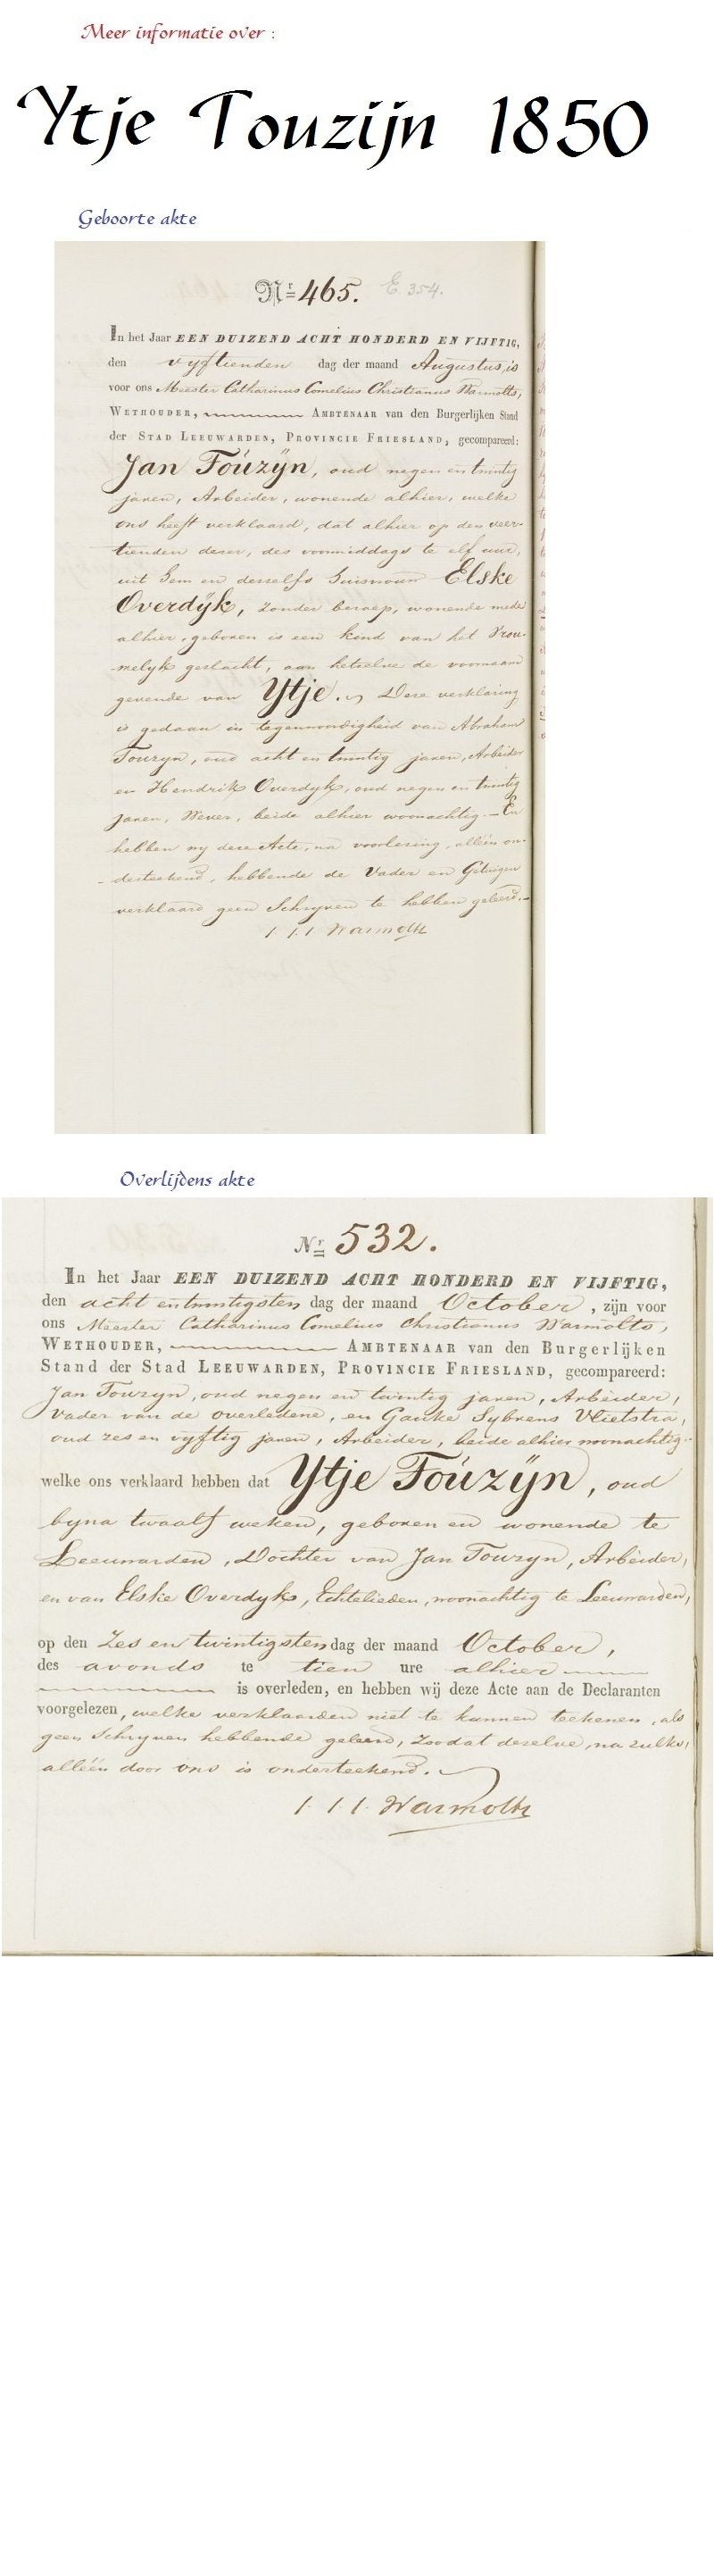 Meer informatie over :
Ytje Touzijn 1850
Geboorte akte
Nr 465. E. 354.
In het Jaar EEN DUIZEND ACHT HONDERD EN VIJFTIG,
den vyftienden dag der maand Augustus, is
voor ons Meester Catharinus Cornelius Christianus Warmolts,
WETHOUDER, AMBTENAAR van den Burgerlijken Stand
der STAD LEEUWARDEN, PROVINCIE FRIESLAND, gecompareerd:
Jan Toúzÿn, oud negen en twintig
jaren, Arbeider, wonende alhier, welke
ons heeft verklaard, dat alhier op den veer-
tienden dezer, des voormiddags te elf uur,
uit hem en deszelfs huisvrouw Elske
Overdÿk, zonder beroep, wonende mede
alhier, geboren is een kind van het Vrou-
melyk geslacht, aan hetzelve de voornaam
gevende van Ytje. Deze verklaring
is gedaan in tegenwoordigheid van Abraham
Touzyn, oud acht en twintig jaren, Arbeider
en Hendrik Overdyk, oud negen en twintig
jaren, Wever, beide alhier woonachtig. - En
hebben wy deze Acte, na voorlezing, alléén on-
derteekend, hebbende de Vader en Getuigen
verklaard geen Schryven te hebben geleerd.
Warmolts
Overlijdens akte
Nr 532.
In het Jaar EEN DUIZEND ACHT HONDERD EN VIJFTIG,
den acht en twintigsten dag der maand October, zijn voor
ons Meester Catharinus Cornelius Christianus Warmolts,
WETHOUDER, AMBTENAAR van den Burgerlijken
Stand der Stad LEEUWARDEN, PROVINCIE FRIESLAND, gecompareerd:
Jan Touzyn, oud negen en twintig jaren, Arbeider,
Vader van de overledene, en Gauke Sybrens Vlietstra,
oud zes en vyftig jaren, Arbeider, beide alhier woonachtig
welke ons verklaard hebben dat Ytje Toúzÿn, oud
byna twaalf weken, geboren en wonende te
Leeuwarden, Dochter van Jan Touzyn, Arbeider,
en van Elske Overdyk, Echtelieden, woonachtig te Leeuwarden,
op den Zes en twintigsten dag der maand October,
des avonds te tien ure alhier
is overleden, en hebben wij deze Acte aan de Declaranten
voorgelezen, welke verklaarden niet te kunnen teekenen, als
geen Schryven hebbende geleerd, Zoodat dezelve, na zulks,
alléén door ons is onderteekend.
Warmolts